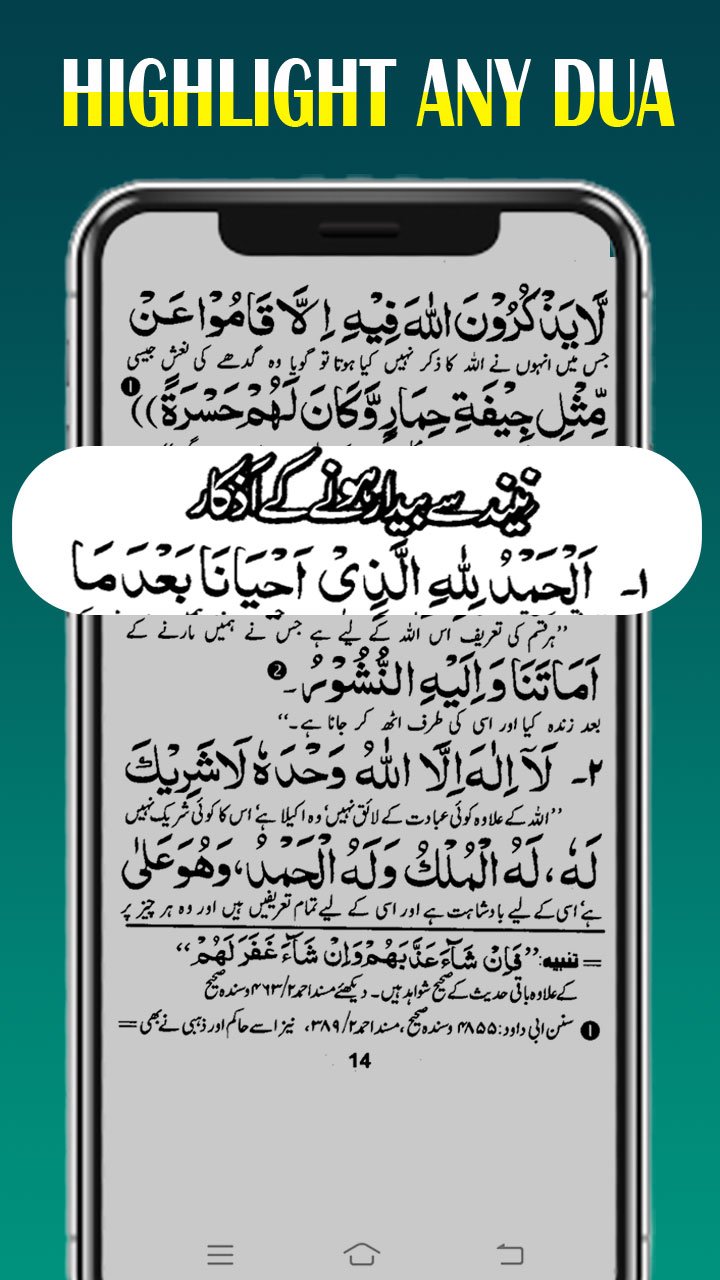 HIGHLIGHT ANY DUA
لَّا يَذْكُرُوْنَ اللّٰهَ فِيْهِ اِلَّا قَامُوْا عَنْ
جس میں انہوں نے اللہ کا ذکر نہیں کیا ہوتا تو گویا وہ گدھے کی نعش جیسی
مِّثْلِ جِيْفَةِ حِمَارٍ وَّكَانَ لَهُمْ حَسْرَةً)) ❶
نیند سے بیدار ہونے کے اذکار
۱۔ اَلْحَمْدُ لِلّٰهِ الَّذِىْ اَحْيَانَا بَعْدَ مَا
’’ہر قسم کی تعریف اس اللہ کے لیے ہے جس نے ہمیں مارنے کے
اَمَاتَنَا وَاِلَيْهِ النُّشُوْرُ۔ ❷
بعد زندہ کیا اور اسی کی طرف اٹھ کر جانا ہے۔‘‘
۲۔ لَآ اِلٰهَ اِلَّا اللّٰهُ وَحْدَهٗ لَا شَرِيْكَ
’’اللہ کے علاوہ کوئی عبادت کے لائق نہیں‘ وہ اکیلا ہے‘ اس کا کوئی شریک نہیں
لَهٗ، لَهُ الْمُلْكُ وَلَهُ الْحَمْدُ، وَهُوَ عَلٰى
ہے‘ اسی کے لیے بادشاہت ہے اور اسی کے لیے تمام تعریفیں ہیں اور وہ ہر چیز پر
= تنبیہ: ’’فَاِنْ شَآءَ عَذَّبَهُمْ وَاِنْ شَآءَ غَفَرَ لَهُمْ‘‘
کے علاوہ باقی حدیث کے صحیح شواہد ہیں۔ دیکھئے مسند احمد ۲/ ۴۶۳ وسندہ صحیح
❶ سنن ابی داود: ۴۸۵۵ وسندہ صحیح، مسند احمد ۲/ ۳۸۹، نیز اسے حاکم اور ذہبی نے بھی =
14